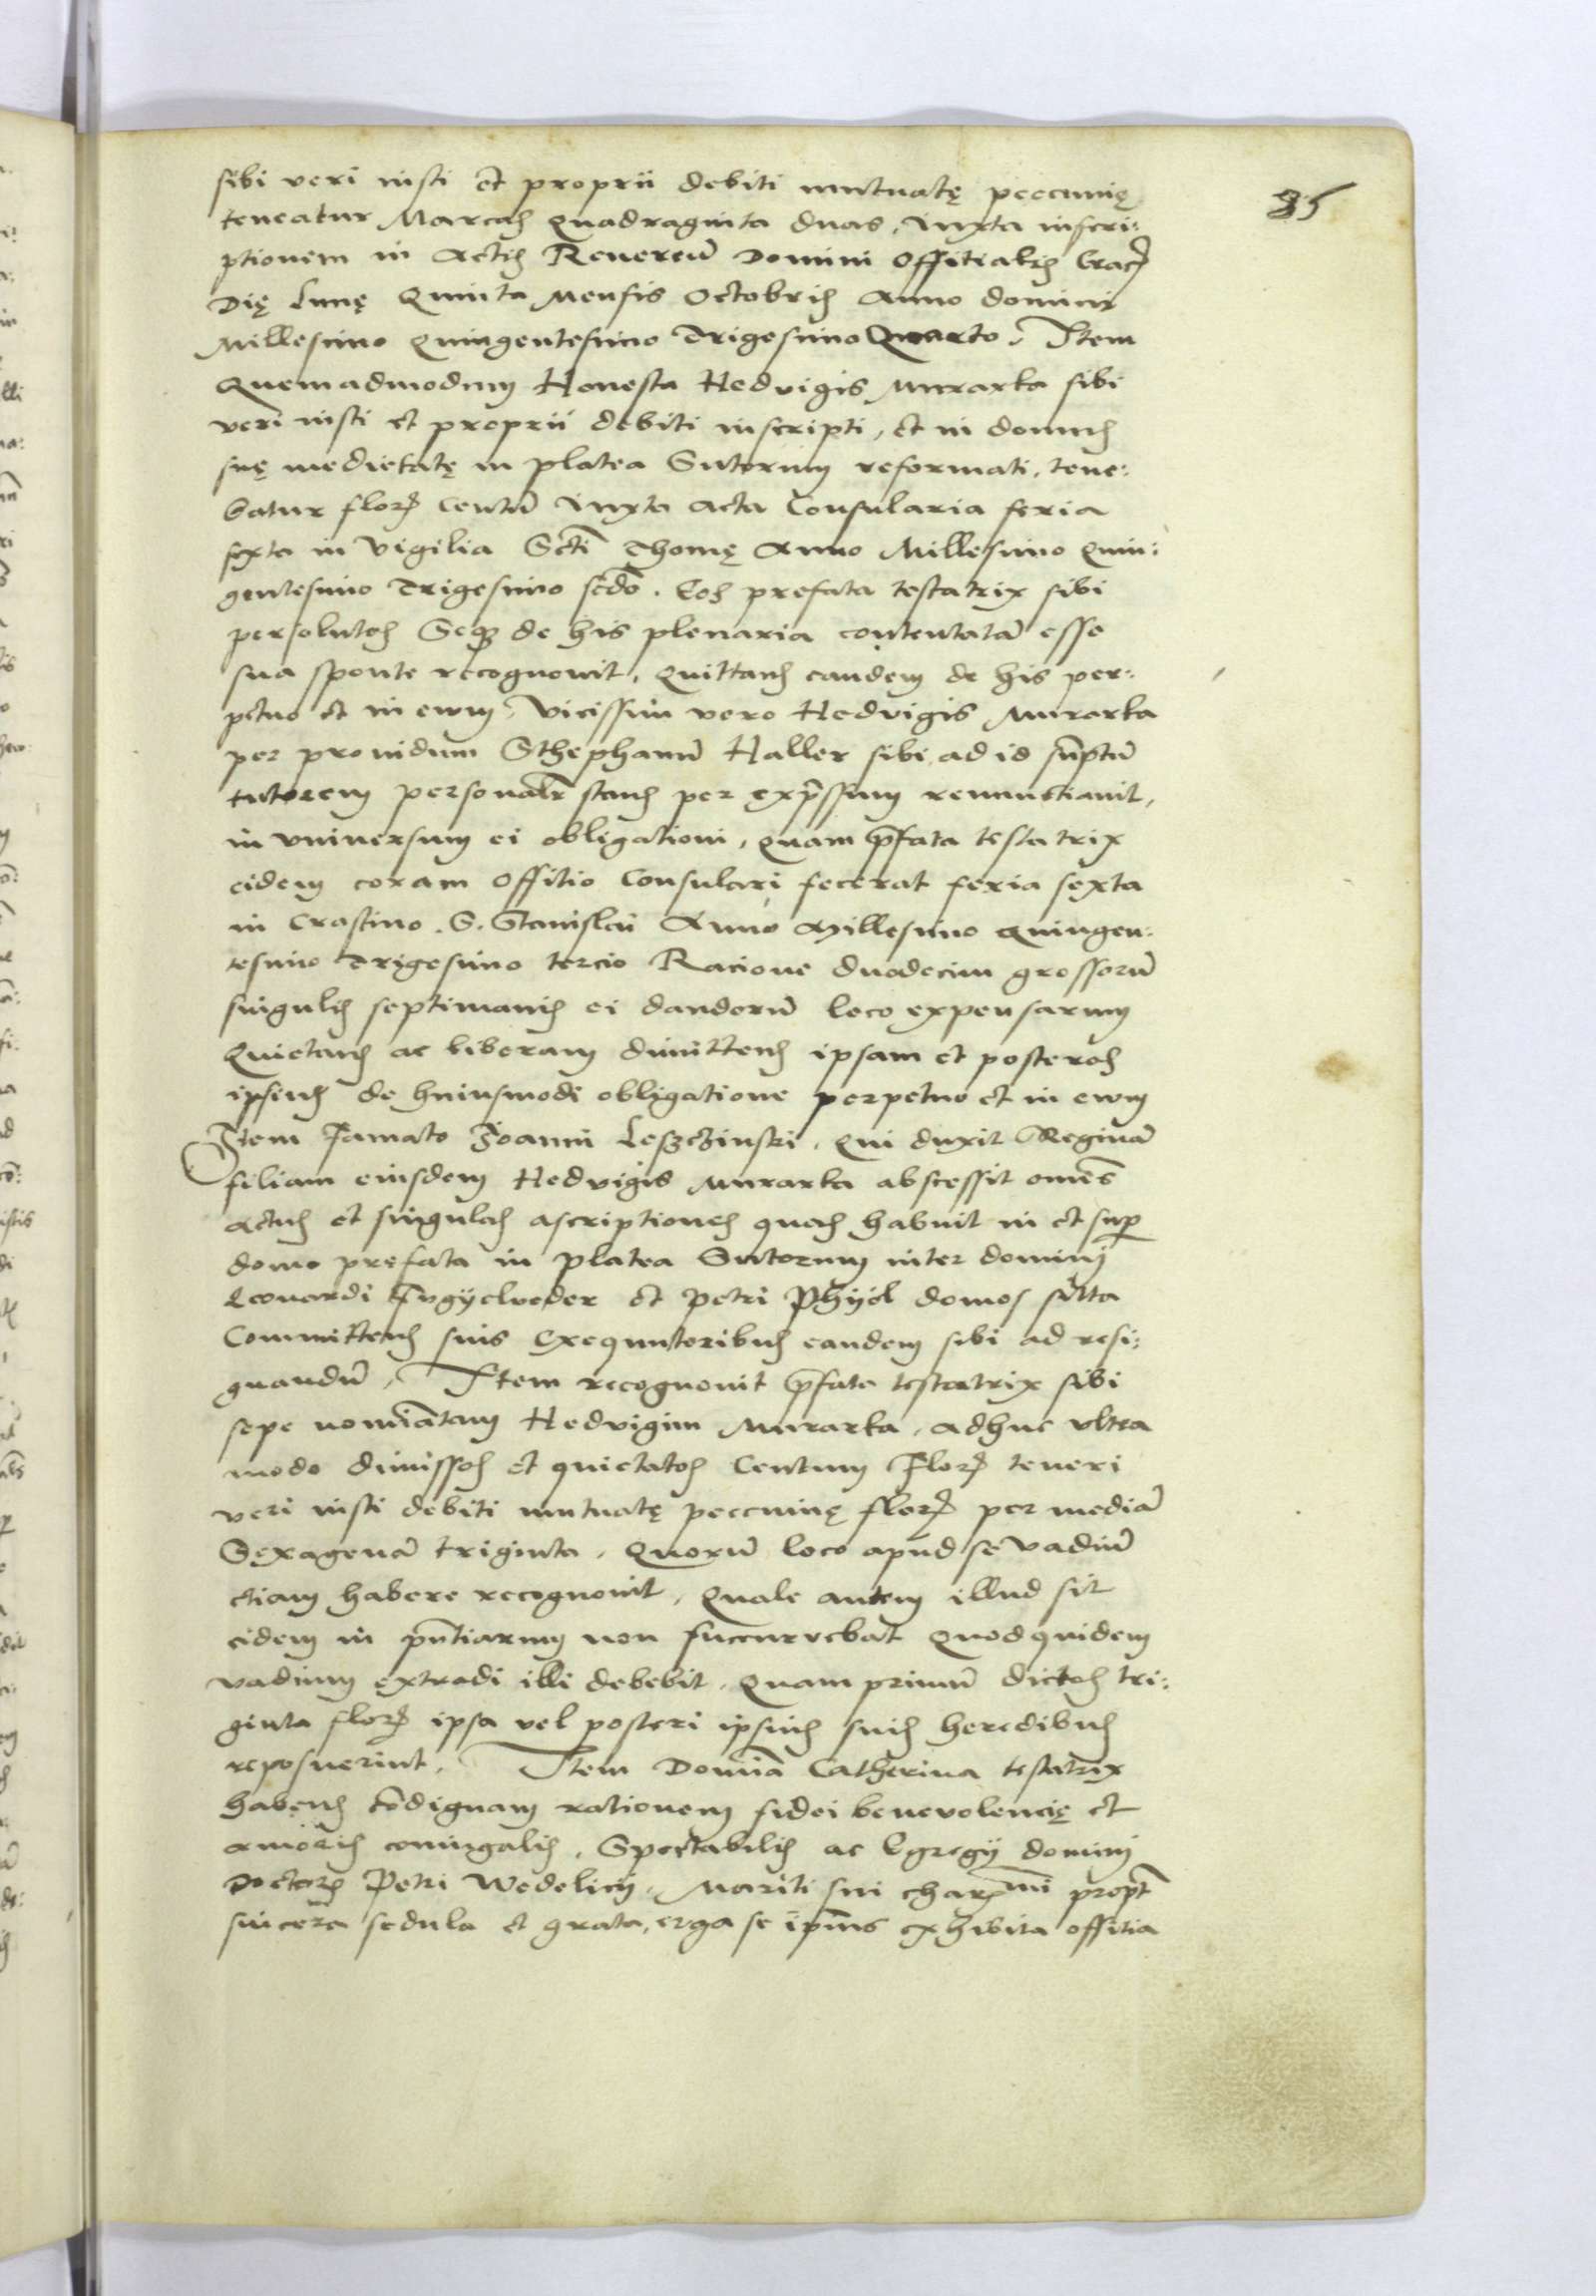 35
sibi veri iusti et proprii debiti mutuatę peccunię
teneatur Marcas Quadraginta duas, iuxta inscri:
ptionem in Actis Reuerēn Domini Offitialis Crac̄
Dię Lunę Quinta Mensis Octobris Anno domini
Millesimo Quingentesimo Trigesimo Quarto. Item
Quemadmodum Honesta Hedvigis Murarka sibi
veri iusti et proprii debiti inscripti, et in domus
suę medietatę in platea Sutorum reformati, tene:
batur flor̄ Centū iuxta Acta Consularia feria
sexta in vigilia Scti Thomę Anno Millesimo Quin:
gentesimo Trigesimo scdo. Eos prefata testatrix sibi
persolutos Seqȝ de his plenaria contentatā esse
sua sponte recognouit, Quittans eandem de his per:
petuo et in ewm, Vicissim vero Hedvigis Murarka
per prouidum Sthephanū Haller sibi ad id sūptū
tutorem personalr̄ stans per exp̄ssum renunctiauit,
in vniuersum ei obligationi, quam p̄fata testatrix
eidem coram Offitio Consulari fecerat feria sexta
in Crastino S. Stanislai Anno Millesimo Quingen:
tesimo Trigesimo tercio Racione duodecim grossorū
singulis septimanis ei dandorū loco expensarum
Quietans ac liberam dimittens ipsam et posteros
ipsius de huiusmodi obligatione perpetuo et in ewm
Item Famato Joanni Leszczinski, qui duxit Reginā
filiam eiusdem Hedvigis Murarka abscessit omēs
actus et singulas ascriptiones quas habuit in et sup̄
domo prefata in platea Sutorum inter domini
Leonardi et Petri domos
Committens suis Exequutoribus eandem sibi ad resi:
gnandū, Item recognouit p̄fata testatrix sibi
sepe nomiātam Hedvigim Murarka, adhuc vltra
modo dimissos et quietatos Centum Flor̄ teneri
veri iusti debiti mutuatę peccunię flor̄ per mediā
Sexagenā triginta, Quorū loco apud se vadiū
etiam habere recognouit, Quale autem illud sit
eidem in pn̄tiarum non succurrebat Quod quidem
vadium extradi illi debebit, Quam primū dictos tri:
ginta flor̄ ipsa vel posteri ipsius suis heredibus
reposuerint. Item Domīa Catherina testatrix
habens cōdignam rationem fidei beneuolencię et
amoris coniugalis, Spectabilis ac Egregii domini
Doctoris Petri Wedelicii, Mariti sui char̄mi propt̄
sincera sedula et grata, erga se ip̄ius exhibita offitia